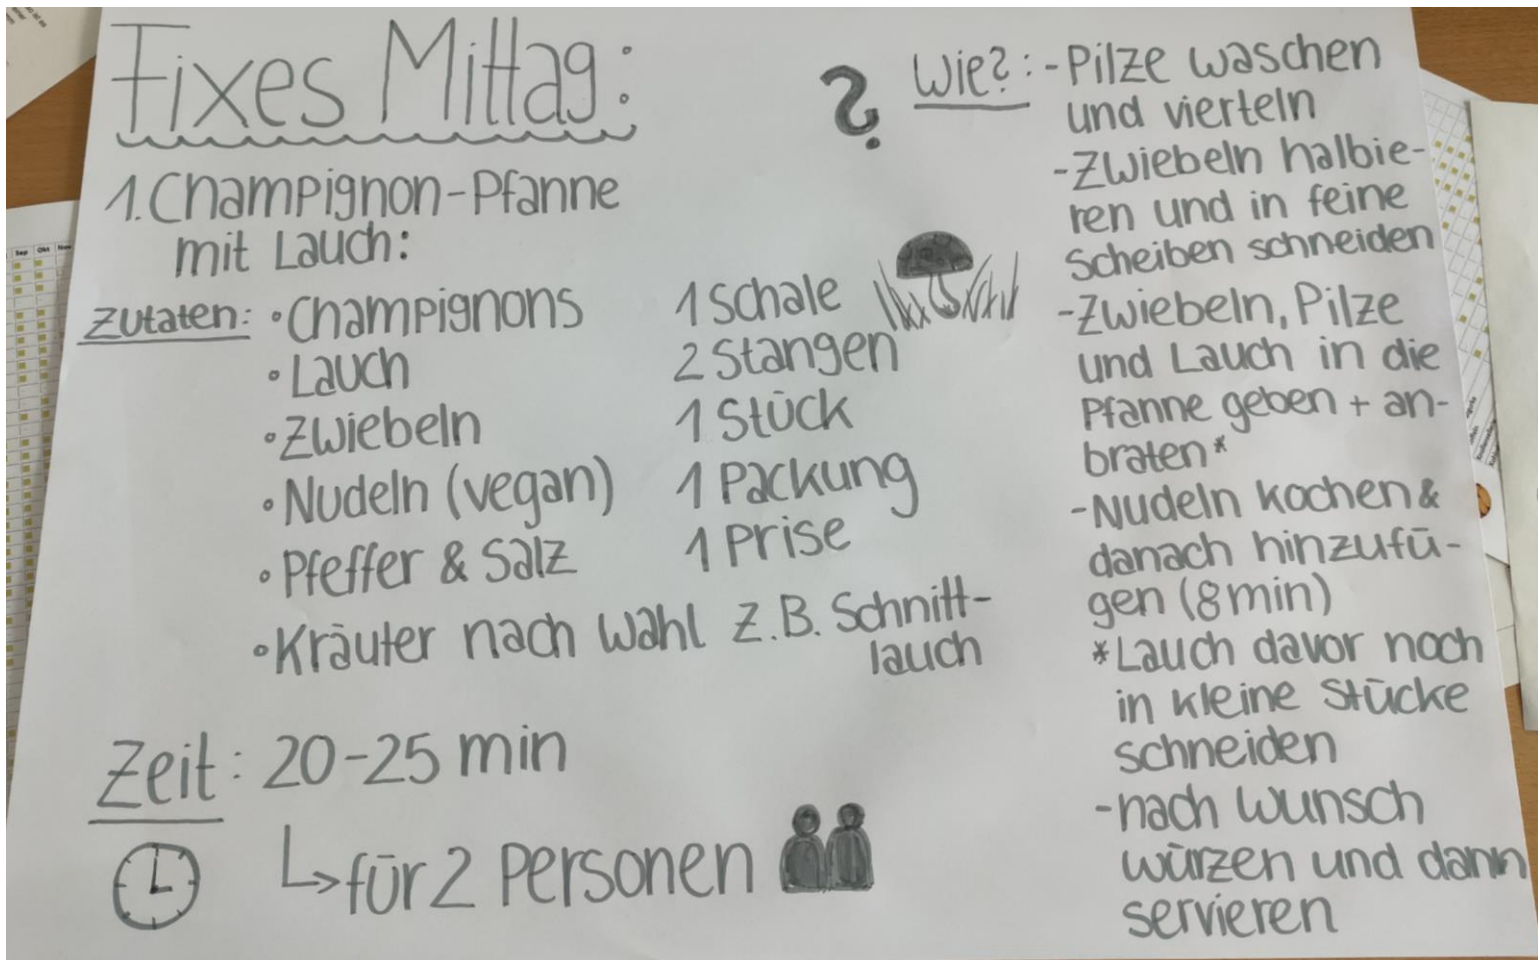 Fixes Mittag:
1. Champignon-Pfanne
mit Lauch:
Zutaten: • Champignons 1 Schale
• Lauch 2 Stangen
• Zwiebeln 1 Stück
• Nudeln (vegan) 1 Packung
• Pfeffer & Salz 1 Prise
• Kräuter nach Wahl z.B. Schnitt-
lauch
Zeit: 20-25 min
↳ für 2 Personen
? Wie?: - Pilze waschen
und vierteln
- Zwiebeln halbie-
ren und in feine
Scheiben schneiden
- Zwiebeln, Pilze
und Lauch in die
Pfanne geben + an-
braten*
- Nudeln kochen &
danach hinzufü-
gen (8 min)
* Lauch davor noch
in kleine Stücke
schneiden
- nach Wunsch
würzen und dann
servieren
Sep Okt Nov